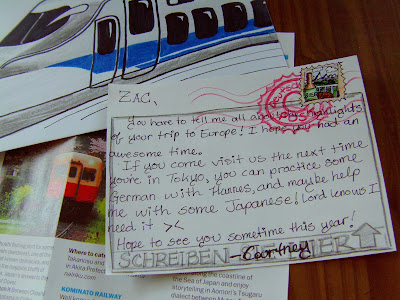 ZAC,
You have to tell me all about highlights
of your trip to Europe! I hope you had an
awesome time.
If you come visit us the next time
you're in Tokyo, you can practice some
German with Hannes, and maybe help
me with some Japanese! Lord knows I
need it ><
Hope to see you sometime this year!
-Courtney
SCHREIBEN
Where to catch
Takanosu and
in Akita Prefect
nairiku.com
KOMINATO RAILWAY
the coastline of
the Sea of Japan and enjoy
storytelling in Aomori's Tsugaru
dialect between